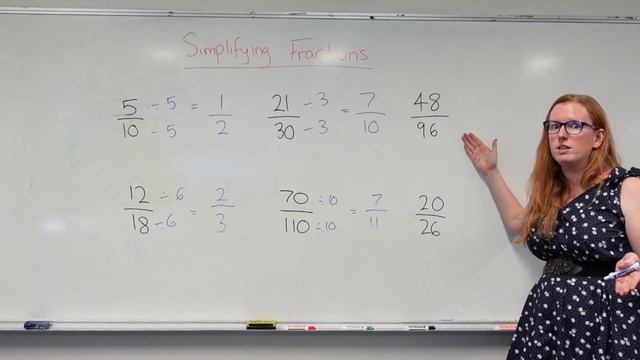 Simplifying Fractions
5/10 ÷5/÷5 = 1/2
21/30 ÷3/÷3 = 7/10
48/96
12/18 ÷6/÷6 = 2/3
70/110 ÷10/÷10 = 7/11
20/26